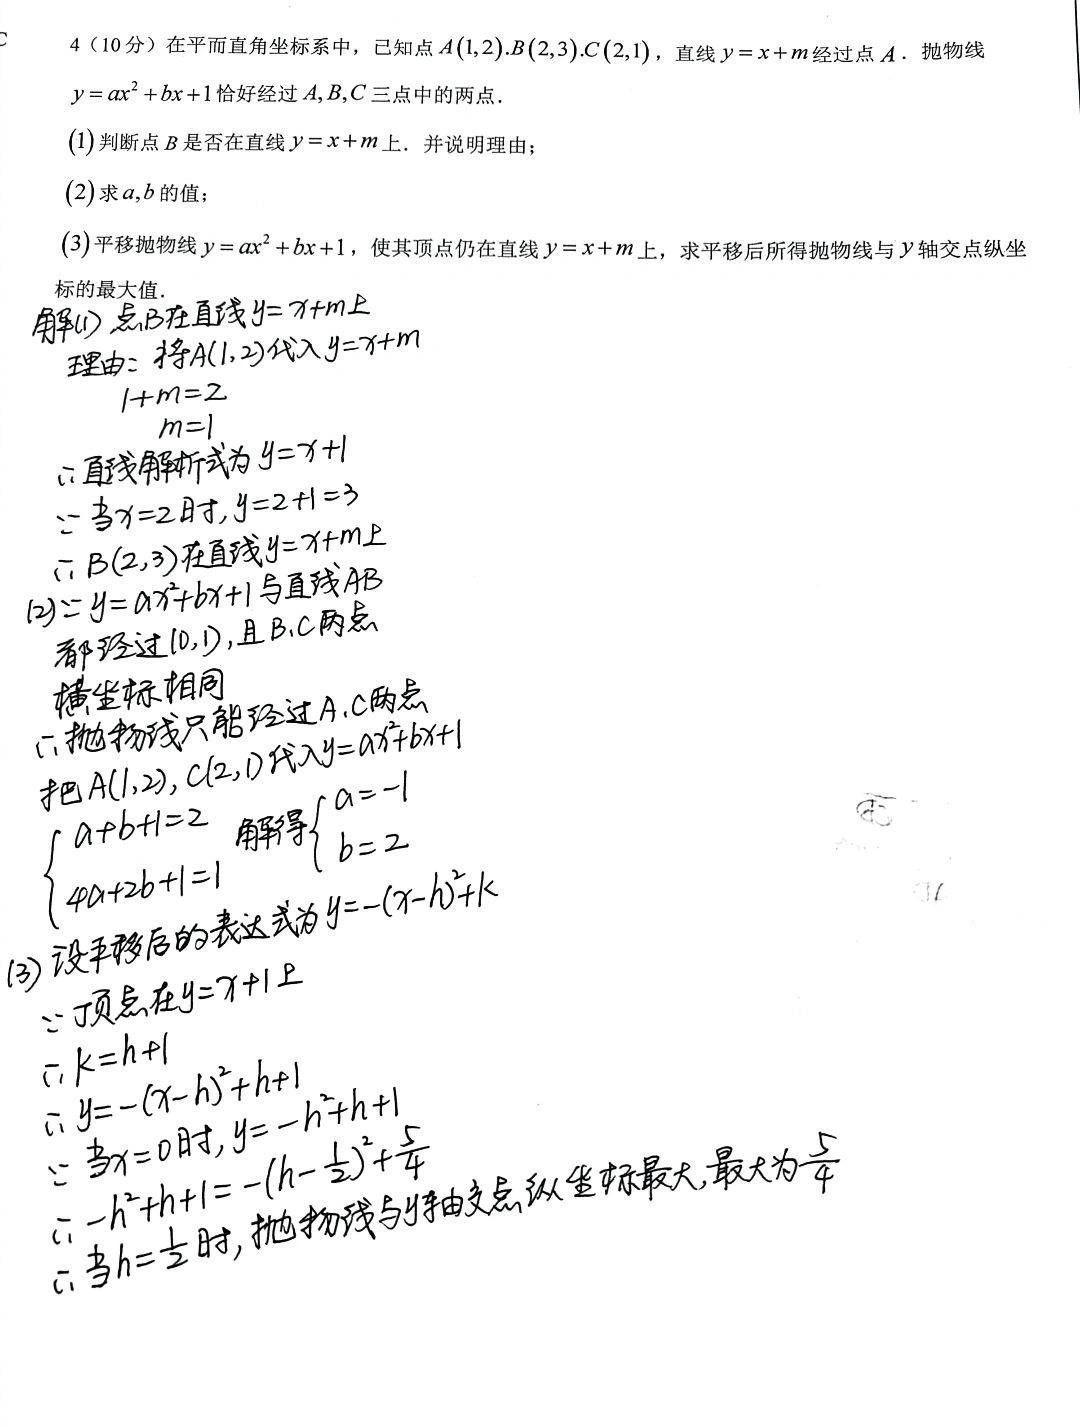 4（10分）在平而直角坐标系中，已知点 A(1,2).B(2,3).C(2,1)，直线 y=x+m 经过点 A．抛物线
y=ax²+bx+1 恰好经过 A,B,C 三点中的两点．
(1)判断点 B 是否在直线 y=x+m 上．并说明理由；
(2)求 a,b 的值；
(3)平移抛物线 y=ax²+bx+1，使其顶点仍在直线 y=x+m 上，求平移后所得抛物线与 y 轴交点纵坐
标的最大值．
解(1) 点B在直线y=x+m上
理由：将A(1,2)代入y=x+m
1+m=2
m=1
∴直线解析式为y=x+1
∵当x=2时,y=2+1=3
∴B(2,3)在直线y=x+m上
(2)∵y=ax²+bx+1与直线AB
都经过(0,1),且B、C两点
横坐标相同
∴抛物线只能经过A、C两点
把A(1,2),C(2,1)代入y=ax²+bx+1
{a+b+1=2 解得{a=-1
4a+2b+1=1 b=2
(3)设平移后的表达式为y=-(x-h)²+k
∵顶点在y=x+1上
∴k=h+1
∴y=-(x-h)²+h+1
∵当x=0时,y=-h²+h+1
∴-h²+h+1=-(h-1/2)²+5/4
∴当h=1/2时,抛物线与y轴交点纵坐标最大,最大为5/4